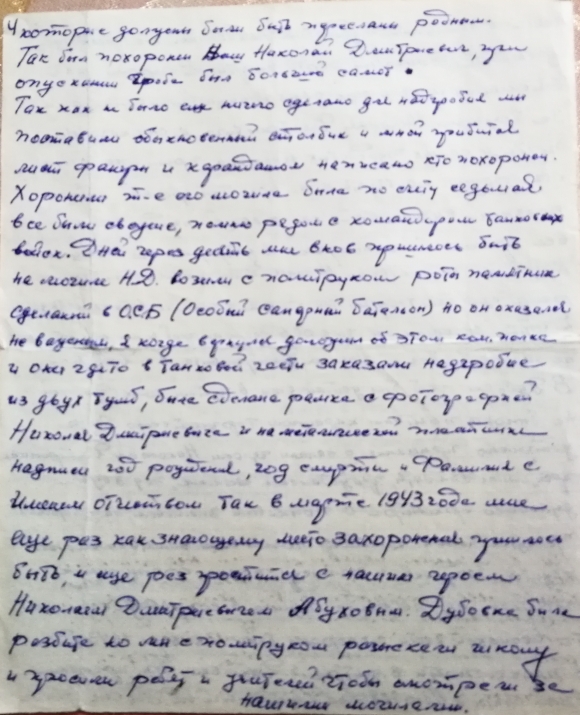 4 которые должны были быть пересланы родным.
Так был похоронен Наш Николай Дмитриевич, при
опускании гроба был большой салют.
Так как не было еще ничего сделано для надгробия мы
поставили обыкновенный столбик и мной прибится
лист фанеры и карандашом написано кто похоронен.
Хоронили т-е его могила была по счету седьмая
все были свежие, помню рядом с командиром танковых
войск. Дней через десять мне вновь пришлось быть
на могиле Н.Д. возили с политруком роты памятник
сделаный в О.С.Б (Особый Саперный батальон) но он оказался
не важным, я когда вернулся доложил об этом ком. полка
и они где то в танковой части заказали надгробие
из двух тумб, была сделана рамка с фотографией
Николая Дмитриевича и на металической пластинке
надписи год рождения, год смерти и Фамилия с
Именем отчеством так в марте 1943 года мне
еще раз как знающему место захоронения пришлось
быть, и еще раз простится с нашим героем
Николаем Дмитриевичем Абуховым. Дубовка была
разбита но мы с политруком розыскали школу
и просили ребят и учителей чтобы смотрели за
нашими могилами.